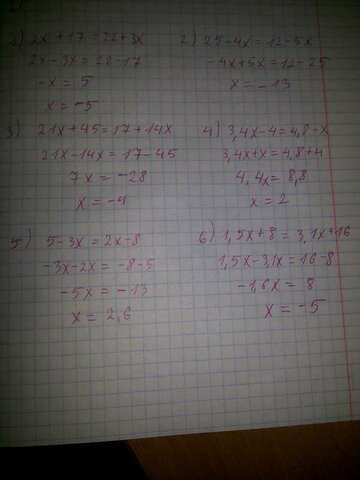 1) 2x+17=22+3x
2x-3x=22-17
-x=5
x=-5
2) 25-4x=12-5x
-4x+5x=12-25
x=-13
3) 21x+45=17+14x
21x-14x=17-45
7x=-28
x=-4
4) 3,4x-4=4,8-x
3,4x+x=4,8+4
4,4x=8,8
x=2
5) 5-3x=2x-8
-3x-2x=-8-5
-5x=-13
x=2,6
6) 1,5x+8=3,1x+16
1,5x-3,1x=16-8
-1,6x=8
x=-5